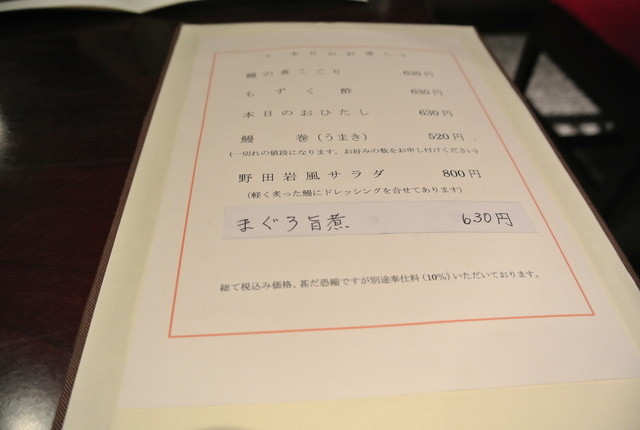 本日のお通し
鰻の煮こごり 630円
もずく酢 630円
本日のおひたし 630円
鰻巻(うまき) 520円
(一切れの値段になります。お好みの数をお申し付けください)
野田岩風サラダ 800円
(軽く炙った鰻にドレッシングを合せてあります)
まぐろ旨煮 630円
総て税込み価格、甚だ恐縮ですが別途奉仕料(10%)いただいております。